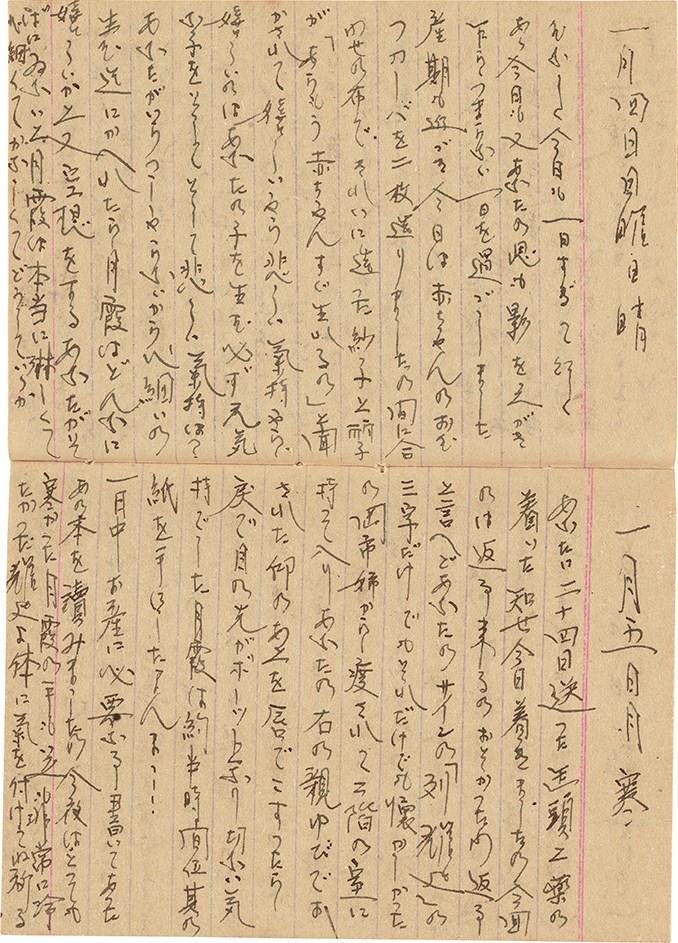 一月四日日曜日晴
むなしく今日も一日すぎて行く
あゝ今日も又あなたの思も影を見がき
下らつまらない一日を過ごしました
産期も近づき今日は赤ちゃんのおむ
つカバーを二枚造りましたの間に合
わせの布できれいに造った紗子と西子
が「あらもう赤ちゃんすぐ生れるの」と聞
かされて嬉しいやら悲しい気持やら
嬉しいのはあなたの子を生む必ず元気
な子をとそして悲しい気持は
あなたがいらつしやらないから心細いの
お送にかへれたら月霞はどんなに
嬉しいかと又空想をするあなたがそ
ばにないと月霞は本当に淋しくて
心細くてかなしくてどうしていゝか
一月五日月寒
あなた二十四日送った缶頭と薬の
着いた知せ今日着きましたの今回
のは返事来るのおそかったわ返事
と言へどあなたのサインの「列耀此」の
三字だけでもそれだけでも懐かしかった
の国市姉から渡されて二階の室に
持て入りあなたの右の親ゆびでお
された印のあとを唇でこすったら
戻で目の先がボーッとなり切ない気
持でした月霞は約半時間位其の
紙を手にしたまんま
一月中お産に必要な事書いてあた
あの本を読みましたの今夜はとても
寒かった月霞の手も足も非常に冷
たかった耀此よ体に気を付けてね祈る